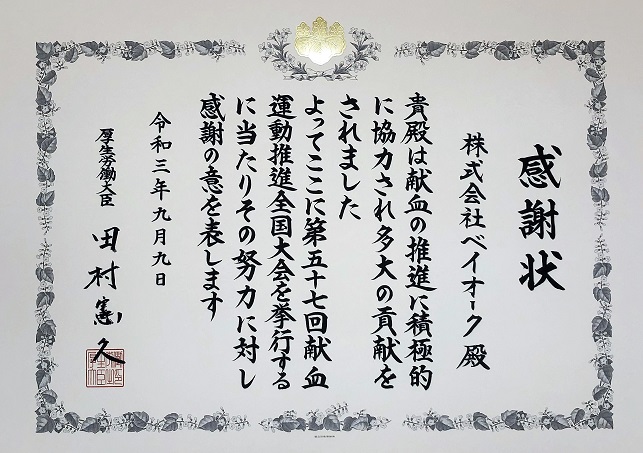 感謝状
株式会社ベイオーク殿
貴殿は献血の推進に積極的
に協力され多大の貢献を
されました
よってここに第五十七回献血
運動推進全国大会を挙行する
に当たりその努力に対し
感謝の意を表します
令和三年九月九日
厚生労働大臣 田村憲久